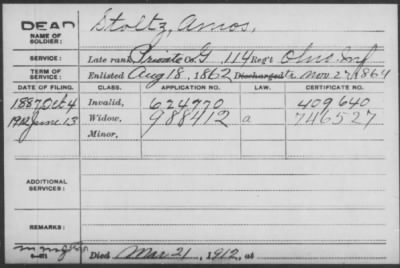 DEAD
NAME OF SOLDIER:
Stoltz, Amos,
SERVICE:
Late rank, Private Co. G, 114 Reg't Ohio Inf
TERM OF SERVICE:
Enlisted Aug 18, 1862 Discharged Nov. 27, 1864
DATE OF FILING. CLASS. APPLICATION NO. LAW. CERTIFICATE NO.
1887, Oct 4 Invalid, 624970 409640
1912 June 13 Widow, 988412 a 746527
Minor,
ADDITIONAL SERVICES:
REMARKS:
Died Mar. 21, 1912, at